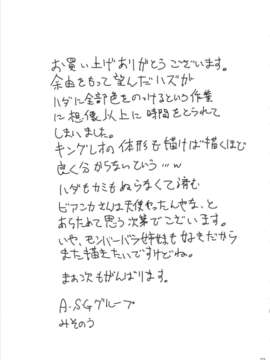 お買い上げありがとうございます。
余由をもって望んだハズが
ハダに全部色をのっけるという作業
に想像以上に時間をとられて
しまいました。
キングレオの体形も描けば描くほど
良く分からないていう…w
ハダもカミもぬらなくて済む
ビアンカさんは天使やったんやな、と
あらためて思う次第でございます。
いや、モンバーバラ姉妹も好きだから
また描きたいですけどね。
まぁ次もがんばります。
A.SGグループ
みそのう